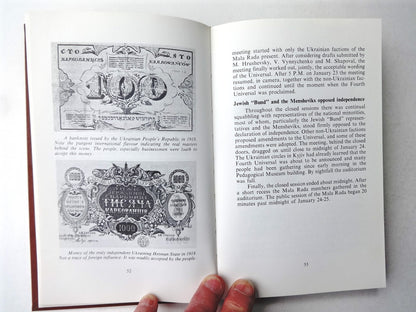 СТО
СТО
КАРБОВАНЦІВ
100
A banknote issued by the Ukrainian People's Republic in 1918.
Note the purposed international flavour indicating the real masters
behind the scene. The people, especially businessmen were loath to
accept this money.
ТИСЯЧА
КАРБОВАНЦІВ
1000
1000
1000
Money of the truly independent Ukrainian Hetman State in 1918.
Not a trace of foreign influence. It was readily accepted by the people.
52
meeting started with only the Ukrainian factions of the
Mala Rada present. After considering drafts submitted by
M. Hrushevsky, V. Vynnychenko and M. Shapoval, the
meeting finally worked out, jointly, the acceptable wording
of the Universal. After 5 P.M. on January 23 the meeting
resumed, in camera, together with the non-Ukrainian
factions and continued until the moment when the Fourth
Universal was proclaimed.
Jewish "Bund" and the Mensheviks opposed independence
Throughout the closed sessions there was continual
squabbling with representatives of the national minorities,
most of whom, particularly the Jewish "Bund" representatives
and the Mensheviks, stood firmly opposed to the
declaration of independence. Other non-Ukrainian factions
proposed numerous amendments, and some of these
amendments were adopted. The meeting, behind the closed
doors, dragged on until close to midnight of January 24.
The Ukrainian circles in Kyjiv had already learned that the
Fourth Universal was about to be announced and many
people had been gathering since early morning in the
Pedagogical Museum building. By nightfall the auditorium
was full.
Finally, the closed session ended about midnight. After
a short recess the Mala Rada members gathered in the
auditorium. The public session of the Mala Rada began 20
minutes past midnight of January 24-25.
53